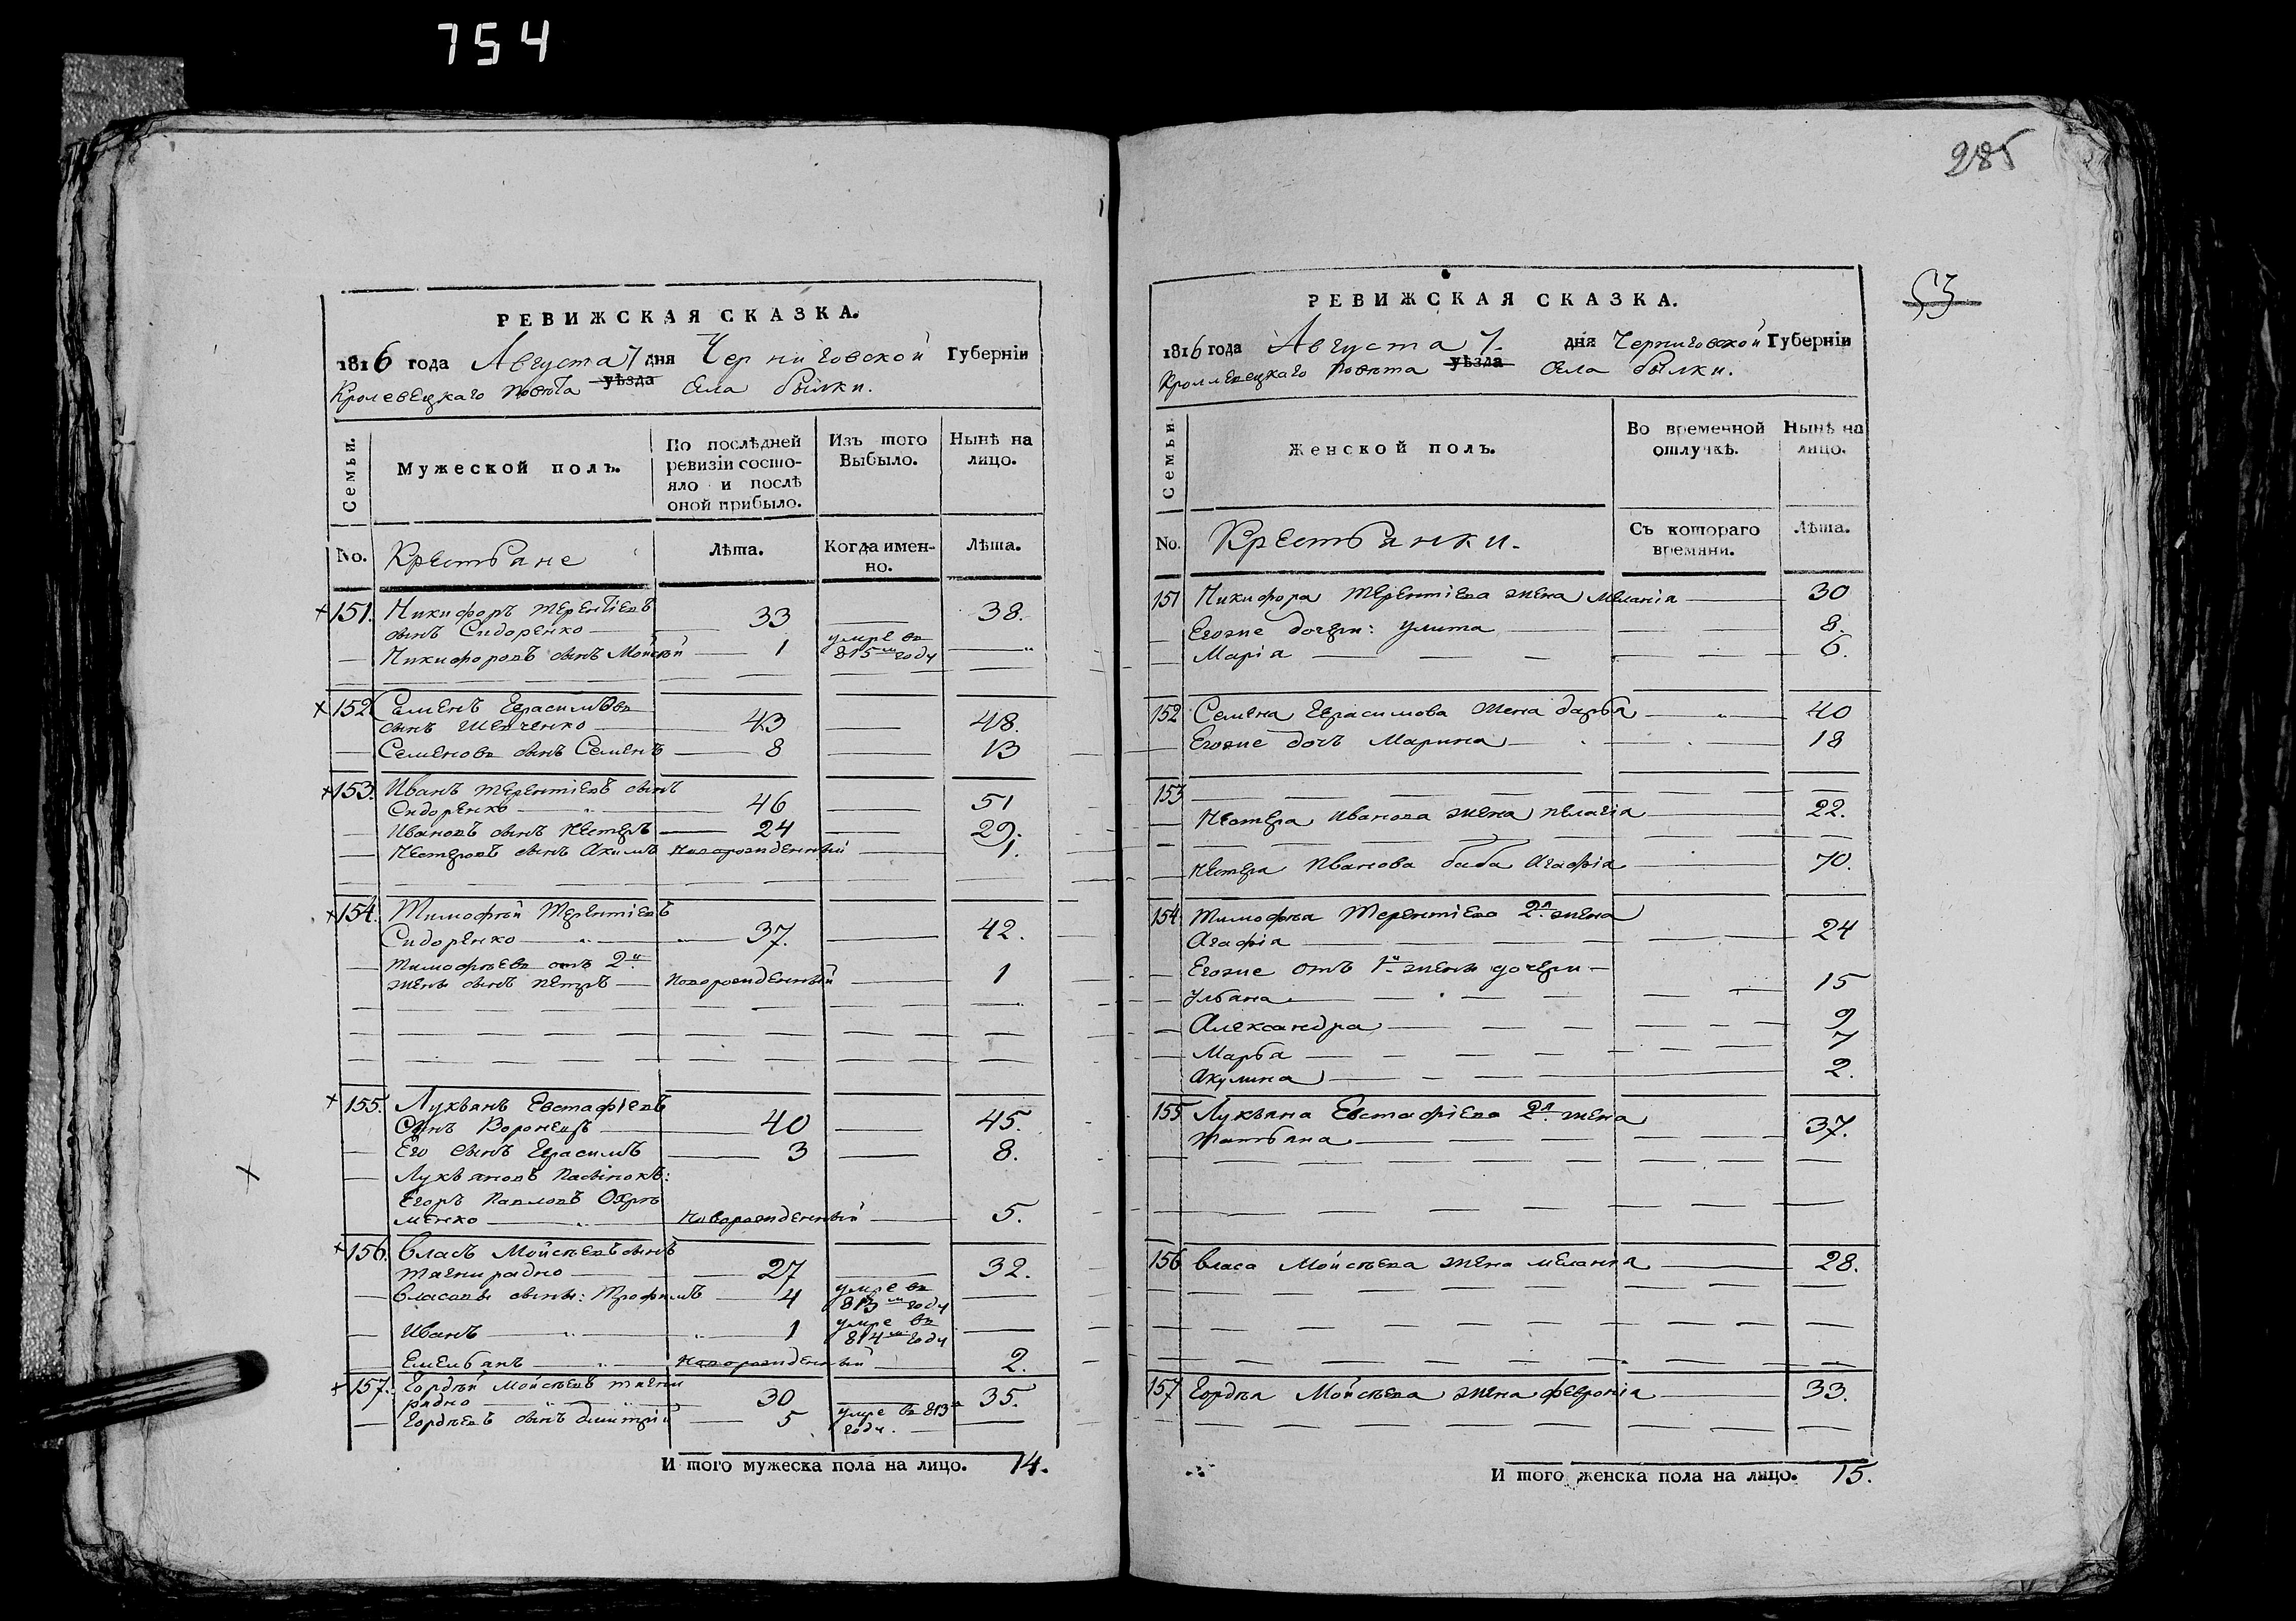 754
РЕВИЖСКАЯ СКАЗКА.
1816 года Августа 7 дня Черниговской Губерніи
Кролевецкаго повѣта уѣзда села былки.
Семьи.
Мужеской полъ.
По послѣдней ревизіи состояло и послѣ оной прибыло.
Изъ того Выбыло.
Нынѣ на лицо.
No. Крестьяне
Лѣта.
Когда именно.
Лѣта.
151. Никифоръ терентіевъ
сынъ Сидоренко 33 38.
Никифоровъ сынъ Мойсей 1 умре въ 815м году
152 Семенъ Герасимовъ
сынъ Шевченко 43 48.
Семеновъ сынъ Семенъ 8 13
153. Иванъ терентіевъ сынъ
Сидоренко 46 51
Ивановъ сынъ Нестеръ 24 29.
Нестеровъ сынъ Акимъ новорожденный 1.
154. Тимофѣй Терентіевъ
Сидоренко 37. 42.
Тимофѣевъ отъ 2й
жены сынъ петръ новорожденный 1
155. Лукьянъ Евстафіевъ
Сынъ Воронецъ 40 45.
Его сынъ Герасимъ 3 8.
Лукьяновъ пасынокъ:
Егоръ павловъ Охрѣ
менко новорожденный 5.
156. Власъ Мойсѣевъ сынъ
тягнирядно 27 32.
Власовы сыны: Трофимъ 4 умре въ 813м году
Иванъ 1 умре въ 814м году
Емельянъ новорожденный 2.
157. Гордѣй Мойсѣевъ тягни
рядно 30 35.
Гордѣевъ сынъ дмитрій 5 умре въ 813м году.
И того мужеска пола на лицо. 14.
285
53
РЕВИЖСКАЯ СКАЗКА.
1816 года Августа 7. дня Черниговской Губерніи
Кролевецкаго повѣта уѣзда Села былки.
Семьи.
Женской полъ.
Во временной отлучкѣ.
Нынѣ на лицо.
No. Крестьянки.
Съ котораго времяни.
Лѣта.
151 Никифора терентіева жена Меланія 30
Егоже дочери: улита 8.
Марія 6.
152 Семена Герасимова жена дарья 40
Егоже дочь Марина 18
153
Нестера Иванова жена пелагія 22.
Нестера Иванова баба Агафія 70.
154 Тимофѣя Терентіева 2я жена
Агафія 24
Егоже отъ 1й жены дочери
Ульяна 15
Александра 9
Марья 7
Акулина 2.
155 Лукьяна Евстафіева 2я жена
татьяна 37.
156 Власа Мойсѣева жена меланія 28.
157 Гордѣя Мойсѣева жена февронія 33.
И того женска пола на лицо. 15.